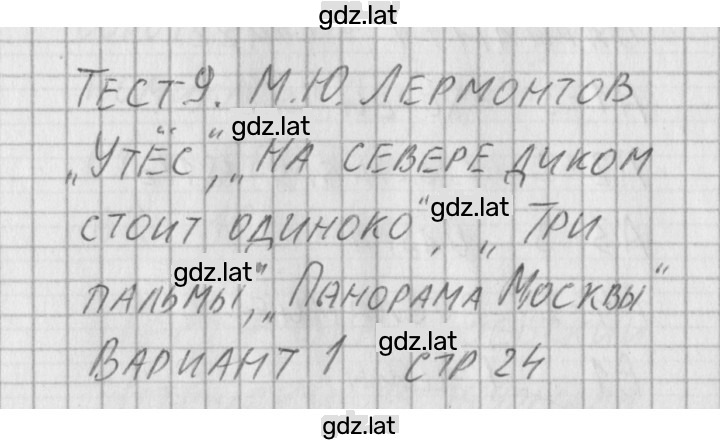 gdz.lat
Тест 9. М.Ю. Лермонтов
gdz.lat
„Утёс“, „На севере диком
gdz.lat
стоит одиноко“, „Три
gdz.lat
пальмы“, „Панорама Москвы“
gdz.lat
Вариант 1 стр 24
gdz.lat